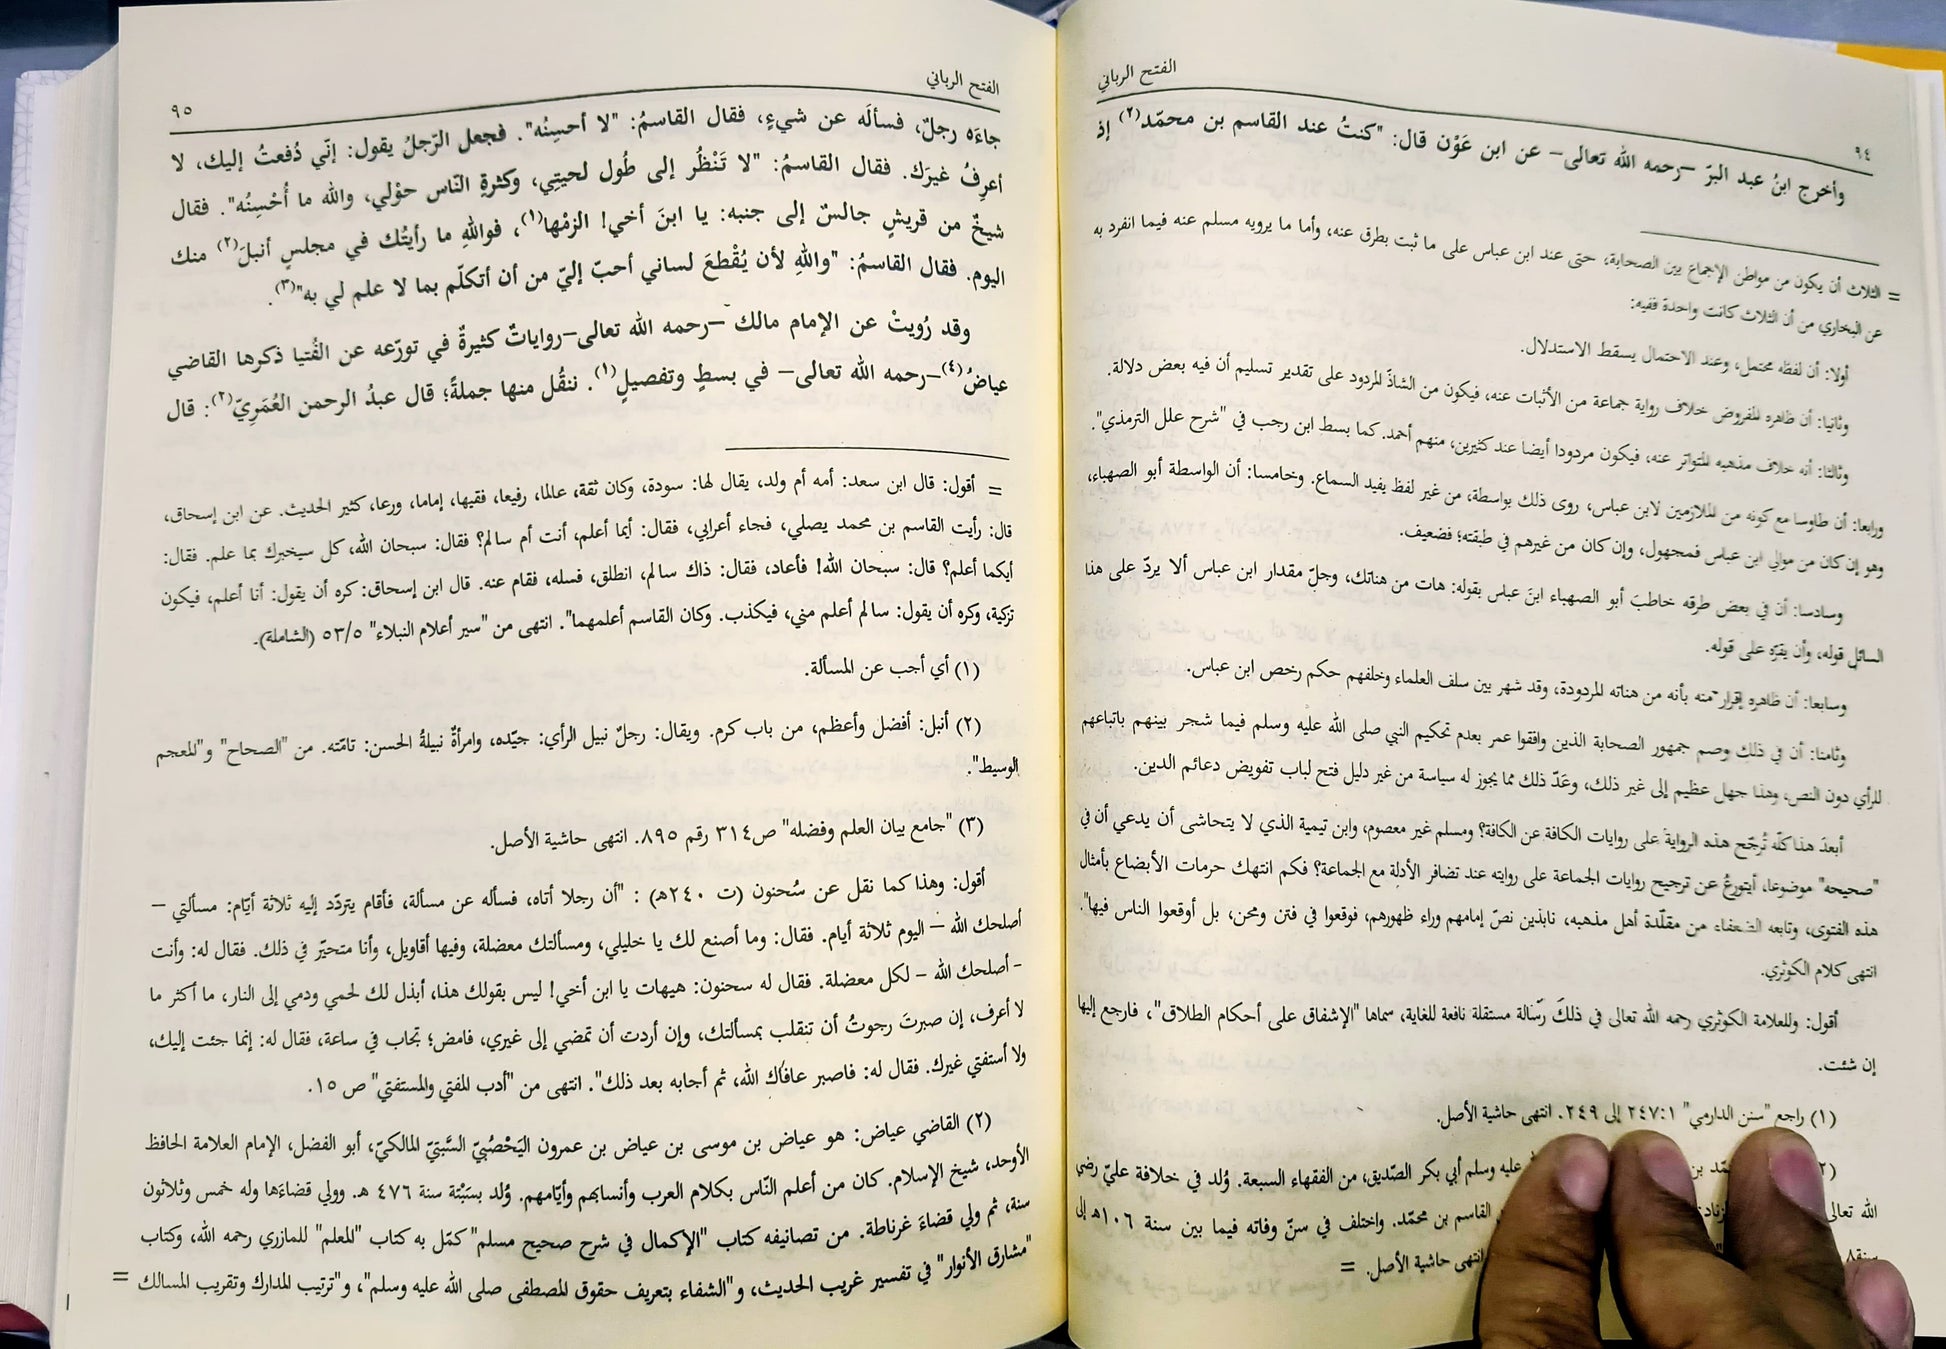 الفتح الرباني
٩٤
وأخرج ابنُ عبد البرّ –رحمه الله تعالى– عن ابن عَوْن قال: "كنتُ عند القاسم بن محمّد(٢) إذ
= الثلاث أن يكون من مواطن الإجماع بين الصحابة، حتى عند ابن عباس على ما ثبت بطرق عنه، وأما ما يرويه مسلم عنه فيما انفرد به
عن البخاري من أن الثلاث كانت واحدة ففيه:
أولا: أن لفظه محتمل، وعند الاحتمال يسقط الاستدلال.
وثانيا: أن ظاهره المفروض خلاف رواية جماعة من الأثبات عنه، فيكون من الشاذّ المردود على تقدير تسليم أن فيه بعض دلالة.
وثالثا: أنه خلاف مذهبه المتواتر عنه، فيكون مردودا أيضا عند كثيرين، منهم أحمد. كما بسط ابن رجب في "شرح علل الترمذي".
ورابعا: أن طاوسا مع كونه من الملازمين لابن عباس، روى ذلك بواسطة، من غير لفظ يفيد السماع. وخامسا: أن الواسطة أبو الصهباء،
وهو إن كان من موالي ابن عباس فمجهول، وإن كان من غيرهم في طبقته؛ فضعيف.
وسادسا: أن في بعض طرقه خاطبَ أبو الصهباء ابنَ عباس بقوله: هات من هناتك، وجلّ مقدار ابن عباس ألا يردّ على هذا
السائل قوله، وأن يقرّه على قوله.
وسابعا: أن ظاهره إقرار منه بأنه من هناته المردودة، وقد شهر بين سلف العلماء وخلفهم حكم رخص ابن عباس.
وثامنا: أن في ذلك وصم جمهور الصحابة الذين وافقوا عمر بعدم تحكيم النبي صلى الله عليه وسلم فيما شجر بينهم باتباعهم
للرأي دون النص، وهذا جهل عظيم إلى غير ذلك، وعَدّ ذلك مما يجوز له سياسة من غير دليل فتح لباب تفويض دعائم الدين.
أبعدَ هذا كلّه تُرجّح هذه الرواية على روايات الكافة عن الكافة؟ ومسلم غير معصوم، وابن تيمية الذي لا يتحاشى أن يدعي أن في
"صحيحه" موضوعا، أيتورعُ عن ترجيح روايات الجماعة على روايته عند تضافر الأدلة مع الجماعة؟ فكم انتهك حرمات الأبضاع بأمثال
هذه الفتوى، وتابعه الضعفاء من مقلّدة أهل مذهبه، نابذين نصّ إمامهم وراء ظهورهم، فوقعوا في فتن ومحن، بل أوقعوا الناس فيها".
انتهى كلام الكوثري.
أقول: وللعلامة الكوثري رحمه الله تعالى في ذلكَ رسالة مستقلة نافعة للغاية، سماها "الإشفاق على أحكام الطلاق"، فارجع إليها
إن شئت.
(١) راجع "سنن الدارمي" ٢٤٧:١ إلى ٢٤٩. انتهى حاشية الأصل.
عليه وسلم أبي بكر الصّديق، من الفقهاء السبعة. وُلد في خلافة عليّ رضي
الله تعالى القاسم بن محمّد. واختلف في سنّ وفاته فيما بين سنة ١٠٦هـ إلى
انتهى حاشية الأصل. =
الفتح الرباني
٩٥
جاءَه رجلٌ، فسألَه عن شيءٍ، فقال القاسمُ: "لا أحسِنُه". فجعل الرّجلُ يقول: إنّي دُفعتُ إليك، لا
أعرِفُ غيرَك. فقال القاسمُ: "لا تَنْظُر إلى طُول لحيتِي، وكثرةِ النّاس حوْلي، والله ما أُحْسِنُه". فقال
شيخٌ من قريشٍ جالسٌ إلى جنبه: يا ابنَ أخي! الزمْها(١)، فواللهِ ما رأيتُك في مجلسٍ أنبلَ(٢) منك
اليوم. فقال القاسمُ: "واللهِ لأن يُقْطعَ لساني أحبّ إليّ من أن أتكلّم بما لا علم لي به"(٣).
وقد رُويتْ عن الإمام مالك –رحمه الله تعالى–رواياتٌ كثيرةٌ في تورّعه عن الفُتيا ذكرها القاضي
عياضُ(٤)–رحمه الله تعالى– في بسطٍ وتفصيلٍ(١). ننقُل منها جملةً؛ قال عبدُ الرحمن العُمَرِيّ(٢): قال
= أقول: قال ابن سعد: أمه أم ولد، يقال لها: سودة، وكان ثقة، عالما، رفيعا، فقيها، إماما، ورعا، كثير الحديث. عن ابن إسحاق،
قال: رأيت القاسم بن محمد يصلي، فجاء أعرابي، فقال: أيما أعلم، أنت أم سالم؟ فقال: سبحان الله، كل سيخبرك بما علم. فقال:
أيكما أعلم؟ قال: سبحان الله! فأعاد، فقال: ذاك سالم، انطلق، فسله، فقام عنه. قال ابن إسحاق: كره أن يقول: أنا أعلم، فيكون
تزكية، وكره أن يقول: سالم أعلم مني، فيكذب. وكان القاسم أعلمهما". انتهى من "سير أعلام النبلاء" ٥٣/٥ (الشاملة).
(١) أي أجب عن المسألة.
(٢) أنبل: أفضل وأعظم، من باب كرم. ويقال: رجلٌ نبيل الرأي: جيّده، وامرأةٌ نبيلةُ الحسن: تامّته. من "الصحاح" و"المعجم
الوسيط".
(٣) "جامع بيان العلم وفضله" ص٣١٤ رقم ٨٩٥. انتهى حاشية الأصل.
أقول: وهذا كما نقل عن سُحنون (ت ٢٤٠هـ) : "أن رجلا أتاه، فسأله عن مسألة، فأقام يتردّد إليه ثلاثة أيّام: مسألتي –
أصلحك الله – اليوم ثلاثة أيام. فقال: وما أصنع لك يا خليلي، ومسألتك معضلة، وفيها أقاويل، وأنا متحيّر في ذلك. فقال له: وأنت
- أصلحك الله – لكل معضلة. فقال له سحنون: هيهات يا ابن أخي! ليس بقولك هذا، أبذل لك لحمي ودمي إلى النار، ما أكثر ما
لا أعرف، إن صبرتَ رجوتُ أن تنقلب بمسألتك، وإن أردت أن تمضي إلى غيري، فامض؛ تجاب في ساعة، فقال له: إنما جئت إليك،
ولا أستفتي غيرك. فقال له: فاصبر عافاك الله، ثم أجابه بعد ذلك". انتهى من "أدب المفتي والمستفتي" ص ١٥.
(٢) القاضي عياض: هو عياض بن موسى بن عياض بن عمرون اليَحْصُبيّ السَّبتيّ المالكيّ، أبو الفضل، الإمام العلامة الحافظ
الأوحد، شيخ الإسلام. كان من أعلم النّاس بكلام العرب وأنسابهم وأيّامهم. وُلد بسَبْتة سنة ٤٧٦ هـ. وولي قضاءَها وله خمس وثلاثون
سنة، ثم ولي قضاءَ غرناطة. من تصانيفه كتاب "الإكمال في شرح صحيح مسلم" كمّل به كتاب "المعلم" للمازري رحمه الله، وكتاب
"مشارق الأنوار" في تفسير غريب الحديث، و"الشفاء بتعريف حقوق المصطفى صلى الله عليه وسلم"، و"ترتيب المدارك وتقريب المسالك =